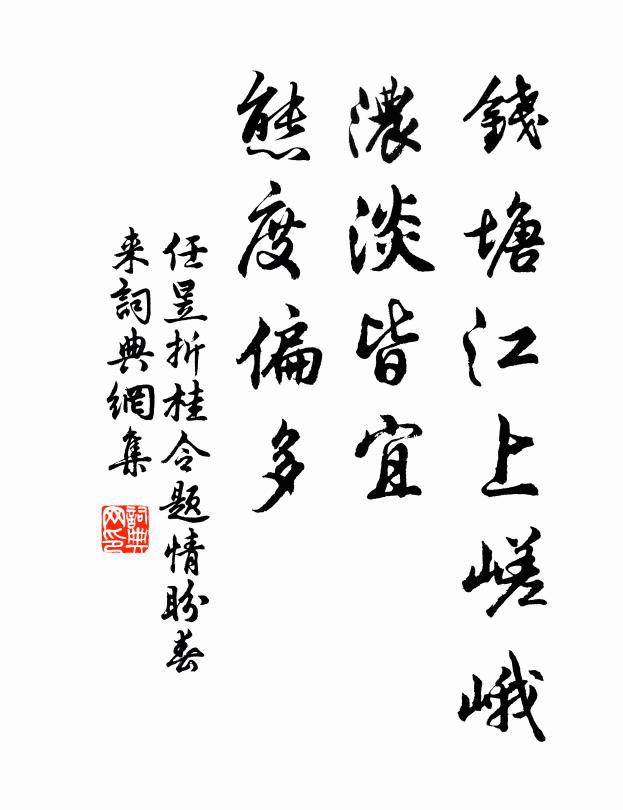 錢塘江上嵯峨
濃淡皆宜
態度偏多
任昱折桂令題情盼春
来詞典網集
詞典
网印